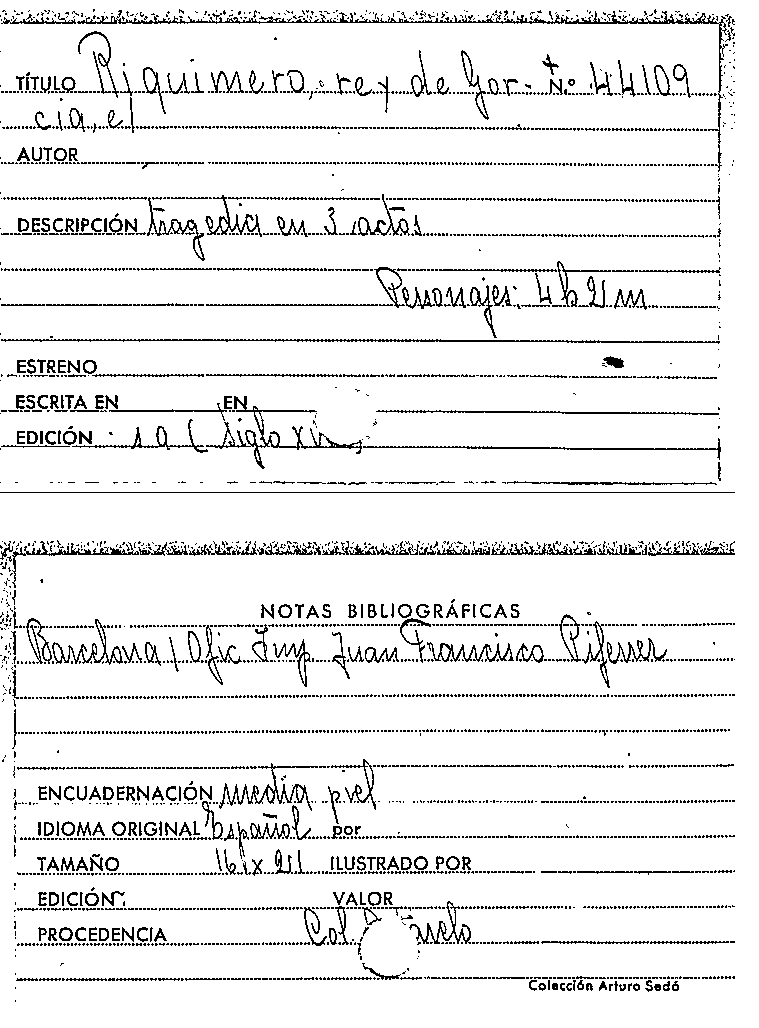 TÍTULO Riquimero, rey de Gor- N.º 44109
cia, el
AUTOR
DESCRIPCIÓN tragedia en 3 actos
Personajes: 4 h 2 m
ESTRENO
ESCRITA EN EN
EDICIÓN s a ( Siglo
NOTAS BIBLIOGRÁFICAS
Barcelona / Ofic Imp Juan Francisco Piferrer
ENCUADERNACIÓN media piel
IDIOMA ORIGINAL Español por
TAMAÑO 16 x 21 ILUSTRADO POR
EDICIÓN VALOR
PROCEDENCIA Col.
Colección Arturo Sedó